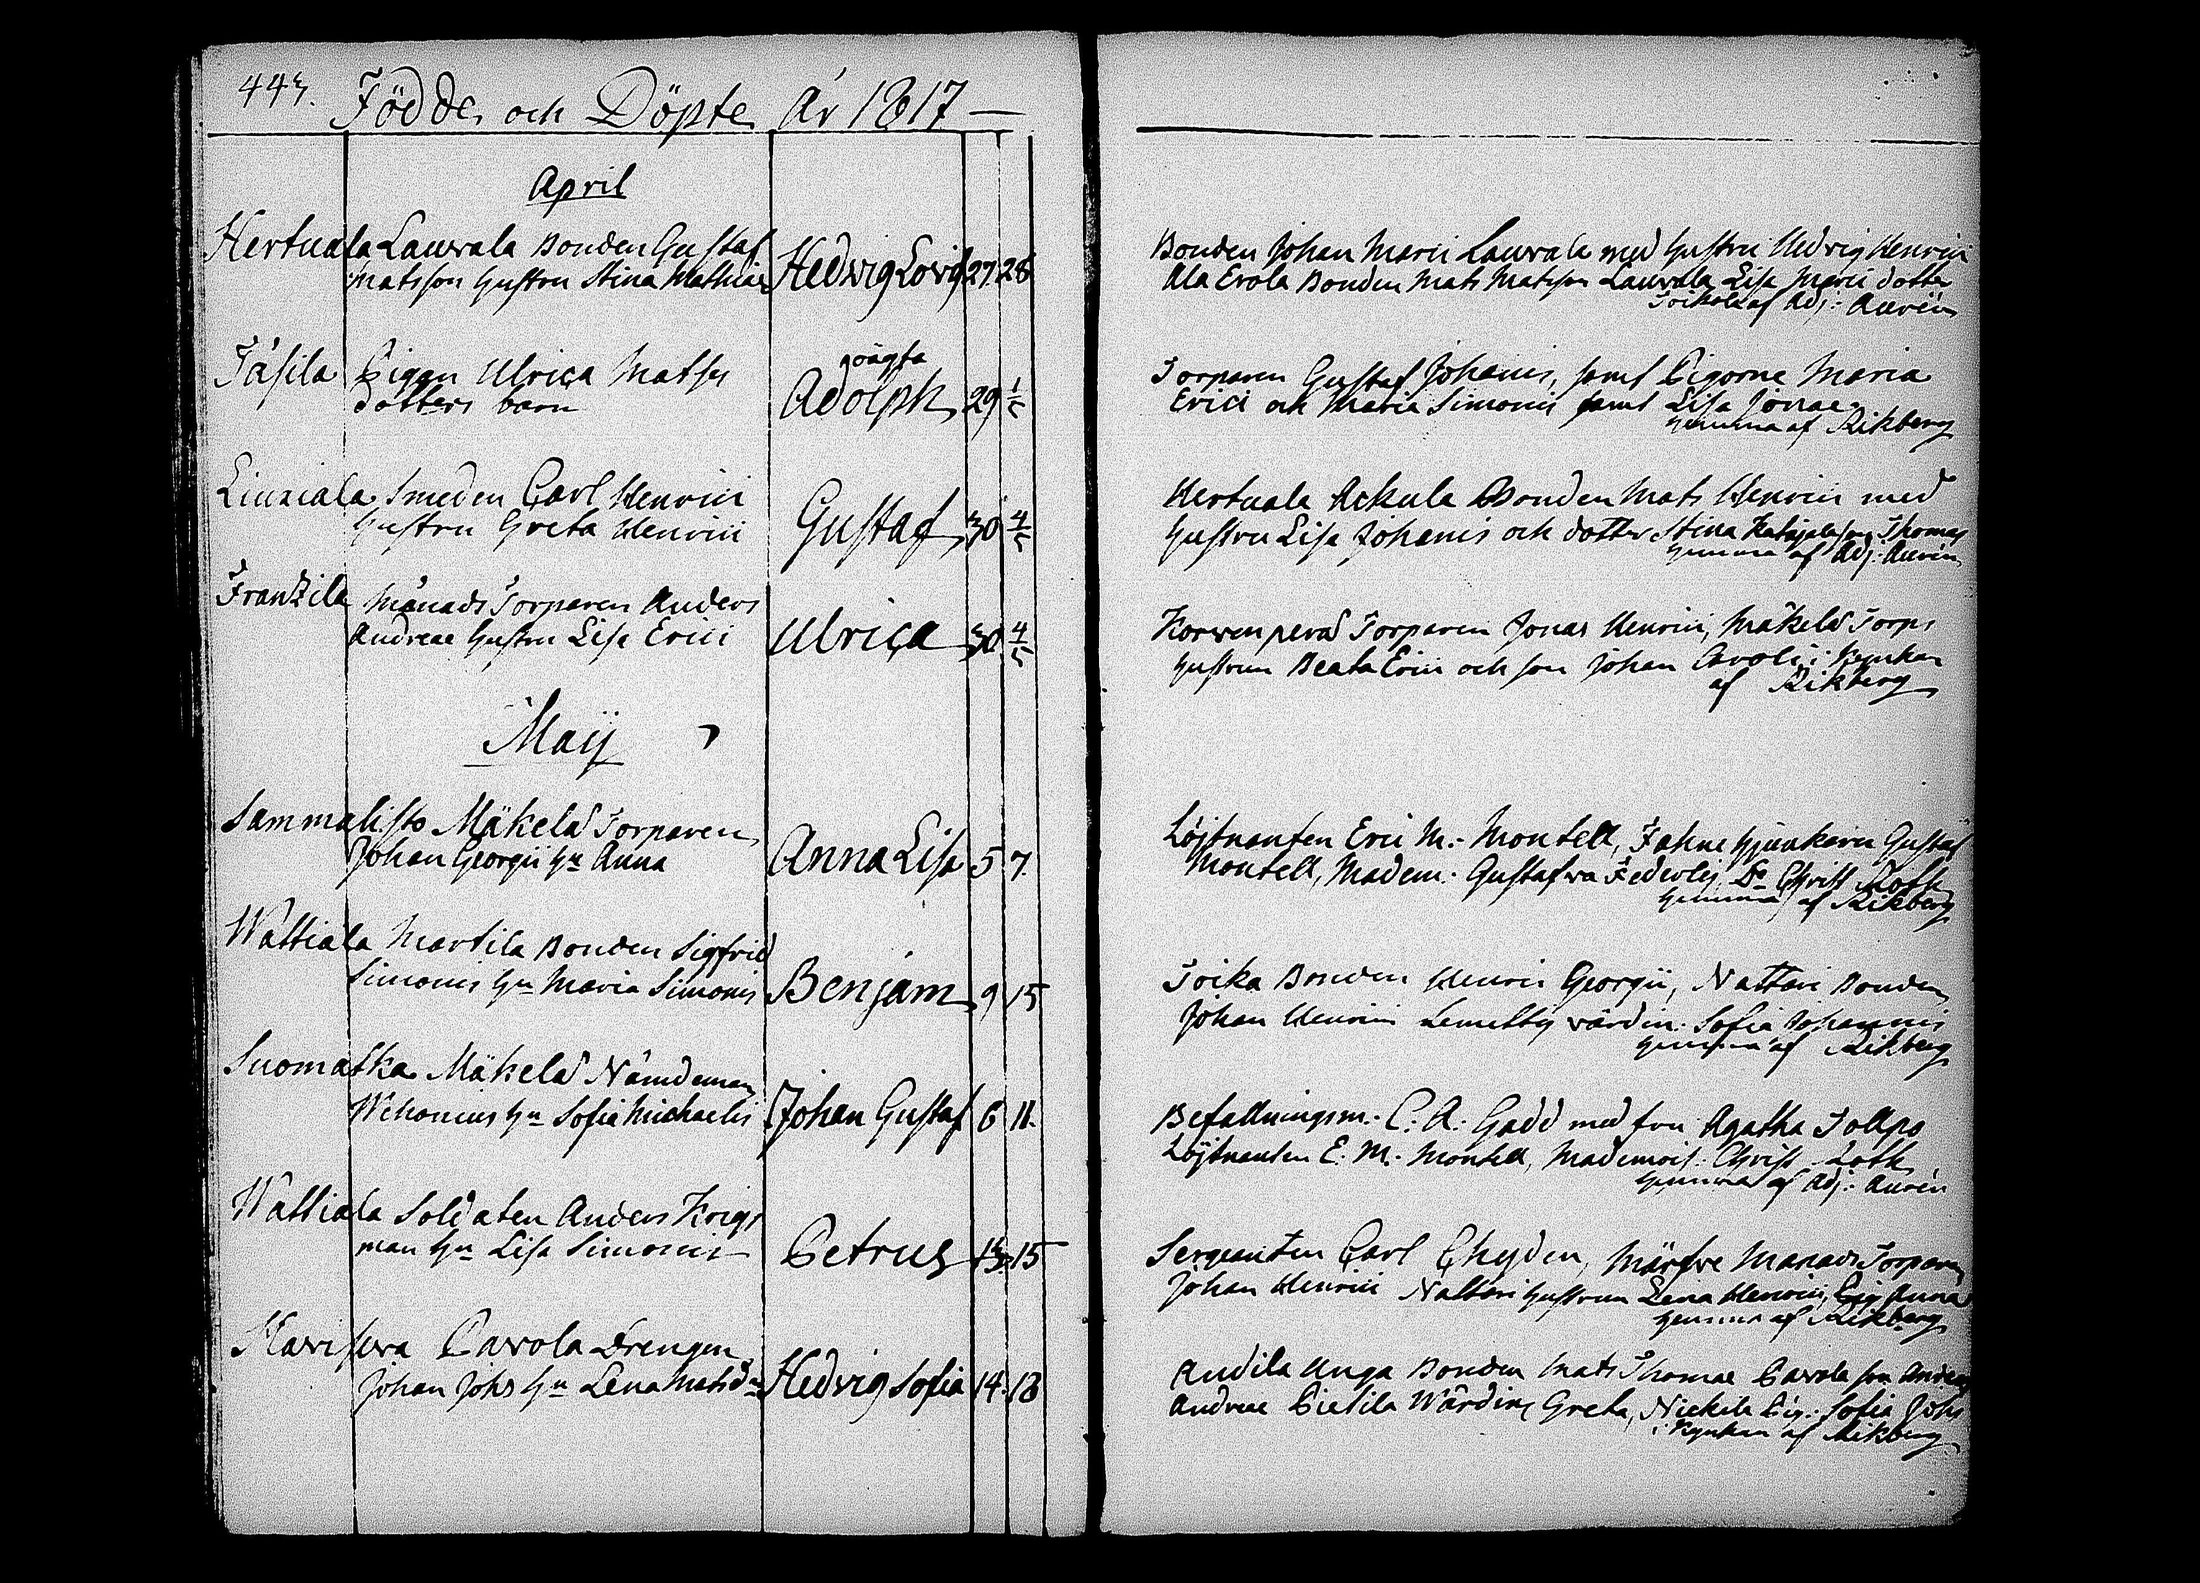 443. Födde och Döpte År 1817 —
April
Hertuala Laurala Bonden Gustaf
Matsson Hustru Stina Mathiæ
Hedvig Lovis 27. 28
Bonden Johan Marci Laurala med Hustru Hedvig Henrici
Ala Erola Bonden Mats Matsson Laurala Lisa Marci dotter
Toikola af Adj: Aurén
Täsila Pigan Ulrica Mats
dotters barn
oägta
Adolph 29 1/5
Torparen Gustaf Johanis, samt Pigorne Maria
Erici och Maria Simonis samt Lisa Jonae
hemma af Rikberg
Liuxiala Smeden Carl Henrici
Hustru Greta Henrici
Gustaf 30 4/5
Hertuala Ackula Bonden Mats Henrici med
Hustru Lisa Johanis och dotter Stina Thomas
hemma af Adj: Aurén
Frankila Månads Torparen Anders
Andreae Hustru Lisa Erici
Ulrica 30 4/5
Korwenperä Torparen Jonas Henrici, Mäkelä Torps
hustrun Beata Erici och son Johan Caroli i Kyrkan
af Rikberg
Maij
Sammalisto Mäkelä Torparen
Johan Georgii Hu Anna
Anna Lisa 5 7.
Löjtnanten Eric M. Montell, Fahnejunkaren Gustaf
Montell, Madem. Gustafva Federley, Do Christ Loth
hemma af Rikberg
Wattiala Martila Bonden Sigfrid
Simonis Hu Maria Simonis
Benjam 9 15
Toika Bonden Henric Georgii, Nattari Bonden
Johan Henrici Lemetty värdin: Sofia Johannis
hemma af Rikberg
Suomatka Mäkelä Nämdeman
Wehonius Hu Sofia Michaelis
Johan Gustaf 6 11.
Befallningsm. C. A. Gadd med fru Agatha Tollpo
Löjtnanten E. M. Montell, Mademois. Christ. Loth
hemma af Adj: Aurén
Wattiala Soldaten Anders Krigs
man Hu Lisa Simonis
Petrus 13. 15
Sergeanten Carl Chyden, Märfve Månads Torparen
Johan Henrici Nattari hustrun Lena Henrici, Pig Anna
hemma af Rikberg
Havisova Pavola Drengen
Johan Johs Hu Lena Matsdr
Hedvig Sofia 14. 18
Andila Unga Bonden Mats Thomae Pavola son Andreas
Andreae Pietila Wärdin Greta, Nickila Pig: Sofia Johs
i Kyrkan af Rikberg